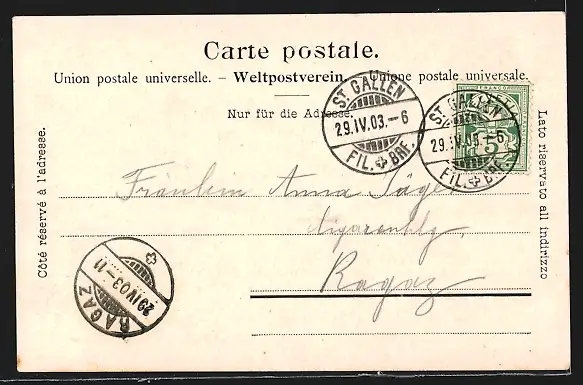 Carte postale.
Union postale universelle. – Weltpostverein. Unione postale universale.
Nur für die Adresse.
Côté réservé à l'adresse.
Lato riservato all indirizzo
ST. GALLEN
29.IV.03.-6
FIL. BRF.
ST. GALLEN
29.IV.03.-6
FIL. BRF.
FRANCO
5
Fräulein Anna Jäger
Ragaz
RAGAZ
29.IV.03-11